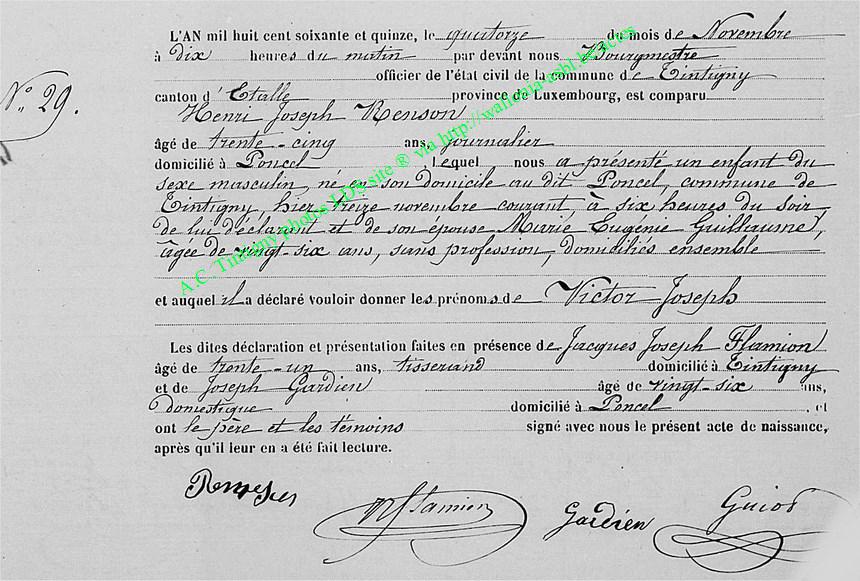 L'AN mil huit cent soixante et quinze, le quatorze du mois de Novembre
à dix heures du matin par devant nous Bourgmestre
officier de l'état civil de la commune de Tintigny
N° 29.
canton d'Etalle province de Luxembourg, est comparu
Henri Joseph Renson
âgé de trente-cinq ans, journalier
domicilié à Poncel, lequel nous a présenté un enfant du
sexe masculin, né en son domicile au dit Poncel, commune de
Tintigny, hier treize novembre courant, à six heures du soir
de lui déclarant et de son épouse Marie Eugénie Guillaume,
âgée de vingt-six ans, sans profession, domiciliés ensemble
et auquel il a déclaré vouloir donner les prénoms de Victor Joseph
Les dites déclaration et présentation faites en présence de Jacques Joseph Flamion
âgé de trente-un ans, tisserand domicilié à Tintigny
et de Joseph Gardien âgé de vingt-six ans,
domestique domicilié à Poncel, et
ont le père et les témoins signé avec nous le présent acte de naissance,
après qu'il leur en a été fait lecture.
Flamion Gardien Guiot
A.C. Tintigny photos LDS site ® via http://wallonia-asbl.be/acies